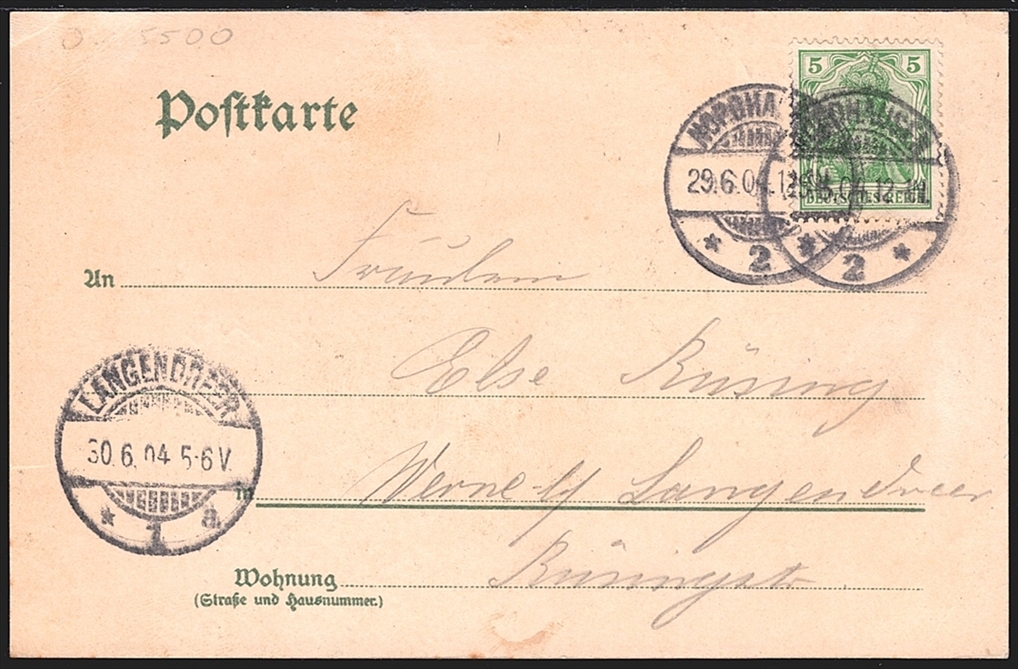 0 5500
Postkarte
5 5
NORDHAUSEN
29.6.04.12
NORDHAUSEN
29.6.04.12
DEUTSCHES REICH
* 2 *
* 2 *
An Fräulein
Else Rüsing
LANGENDREER
30.6.04 5-6V.
* 1 a.
in Werne b/ Langendreer
Wohnung Rüsingstr
(Straße und Hausnummer.)